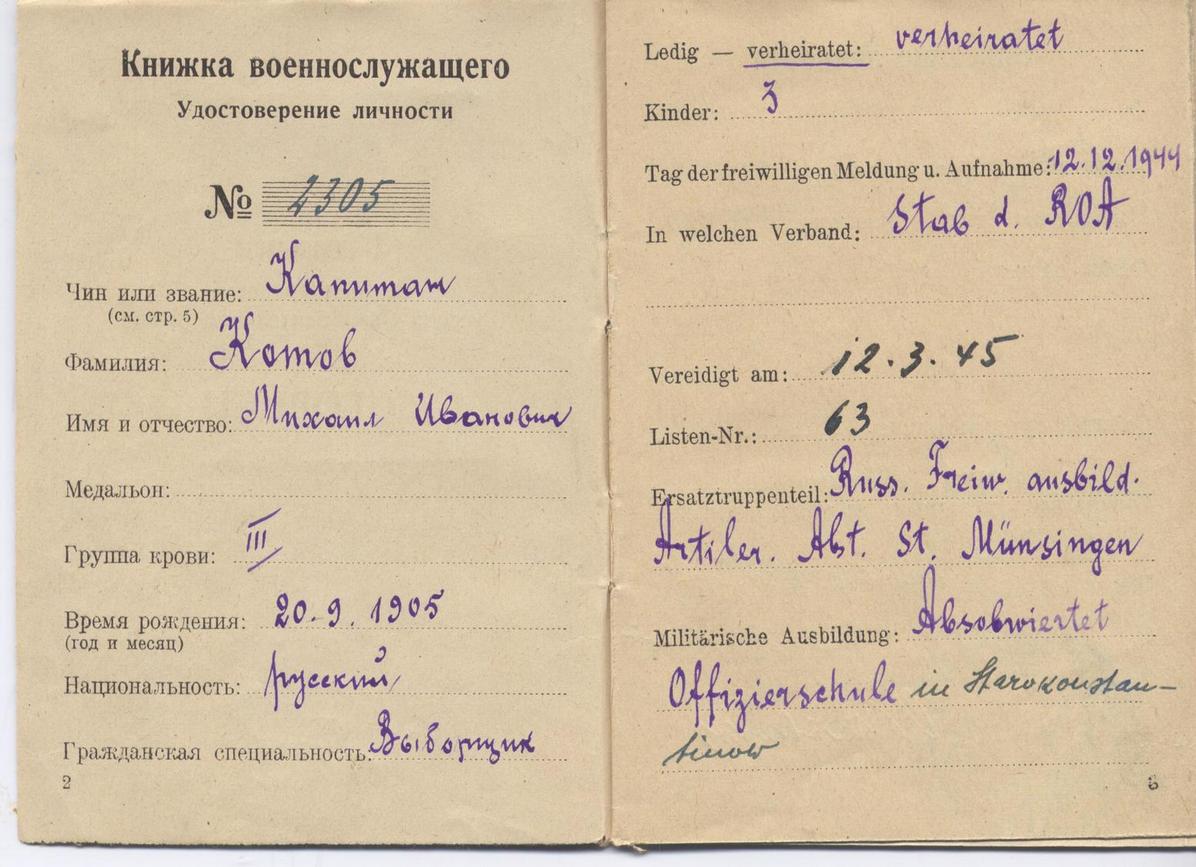 Книжка военнослужащего
Удостоверение личности
№ 2305
Чин или звание: Капитан
(см. стр. 5)
Фамилия: Котов
Имя и отчество: Михаил Иванович
Медальон:
Группа крови: III
Время рождения: 20.9.1905
(год и месяц)
Национальность: русский
Гражданская специальность: Выборщик
2
Ledig — verheiratet: verheiratet
Kinder: 3
Tag der freiwilligen Meldung u. Aufnahme: 12.12.1944
In welchen Verband: Stab d. ROA
Vereidigt am: 12.3.45
Listen-Nr.: 63
Ersatztruppenteil: Russ. Freiw. ausbild.
Artiler. Abt. St. Münsingen
Militärische Ausbildung: Absobwiertet
Offizierschule in Starokonstan-
tinow